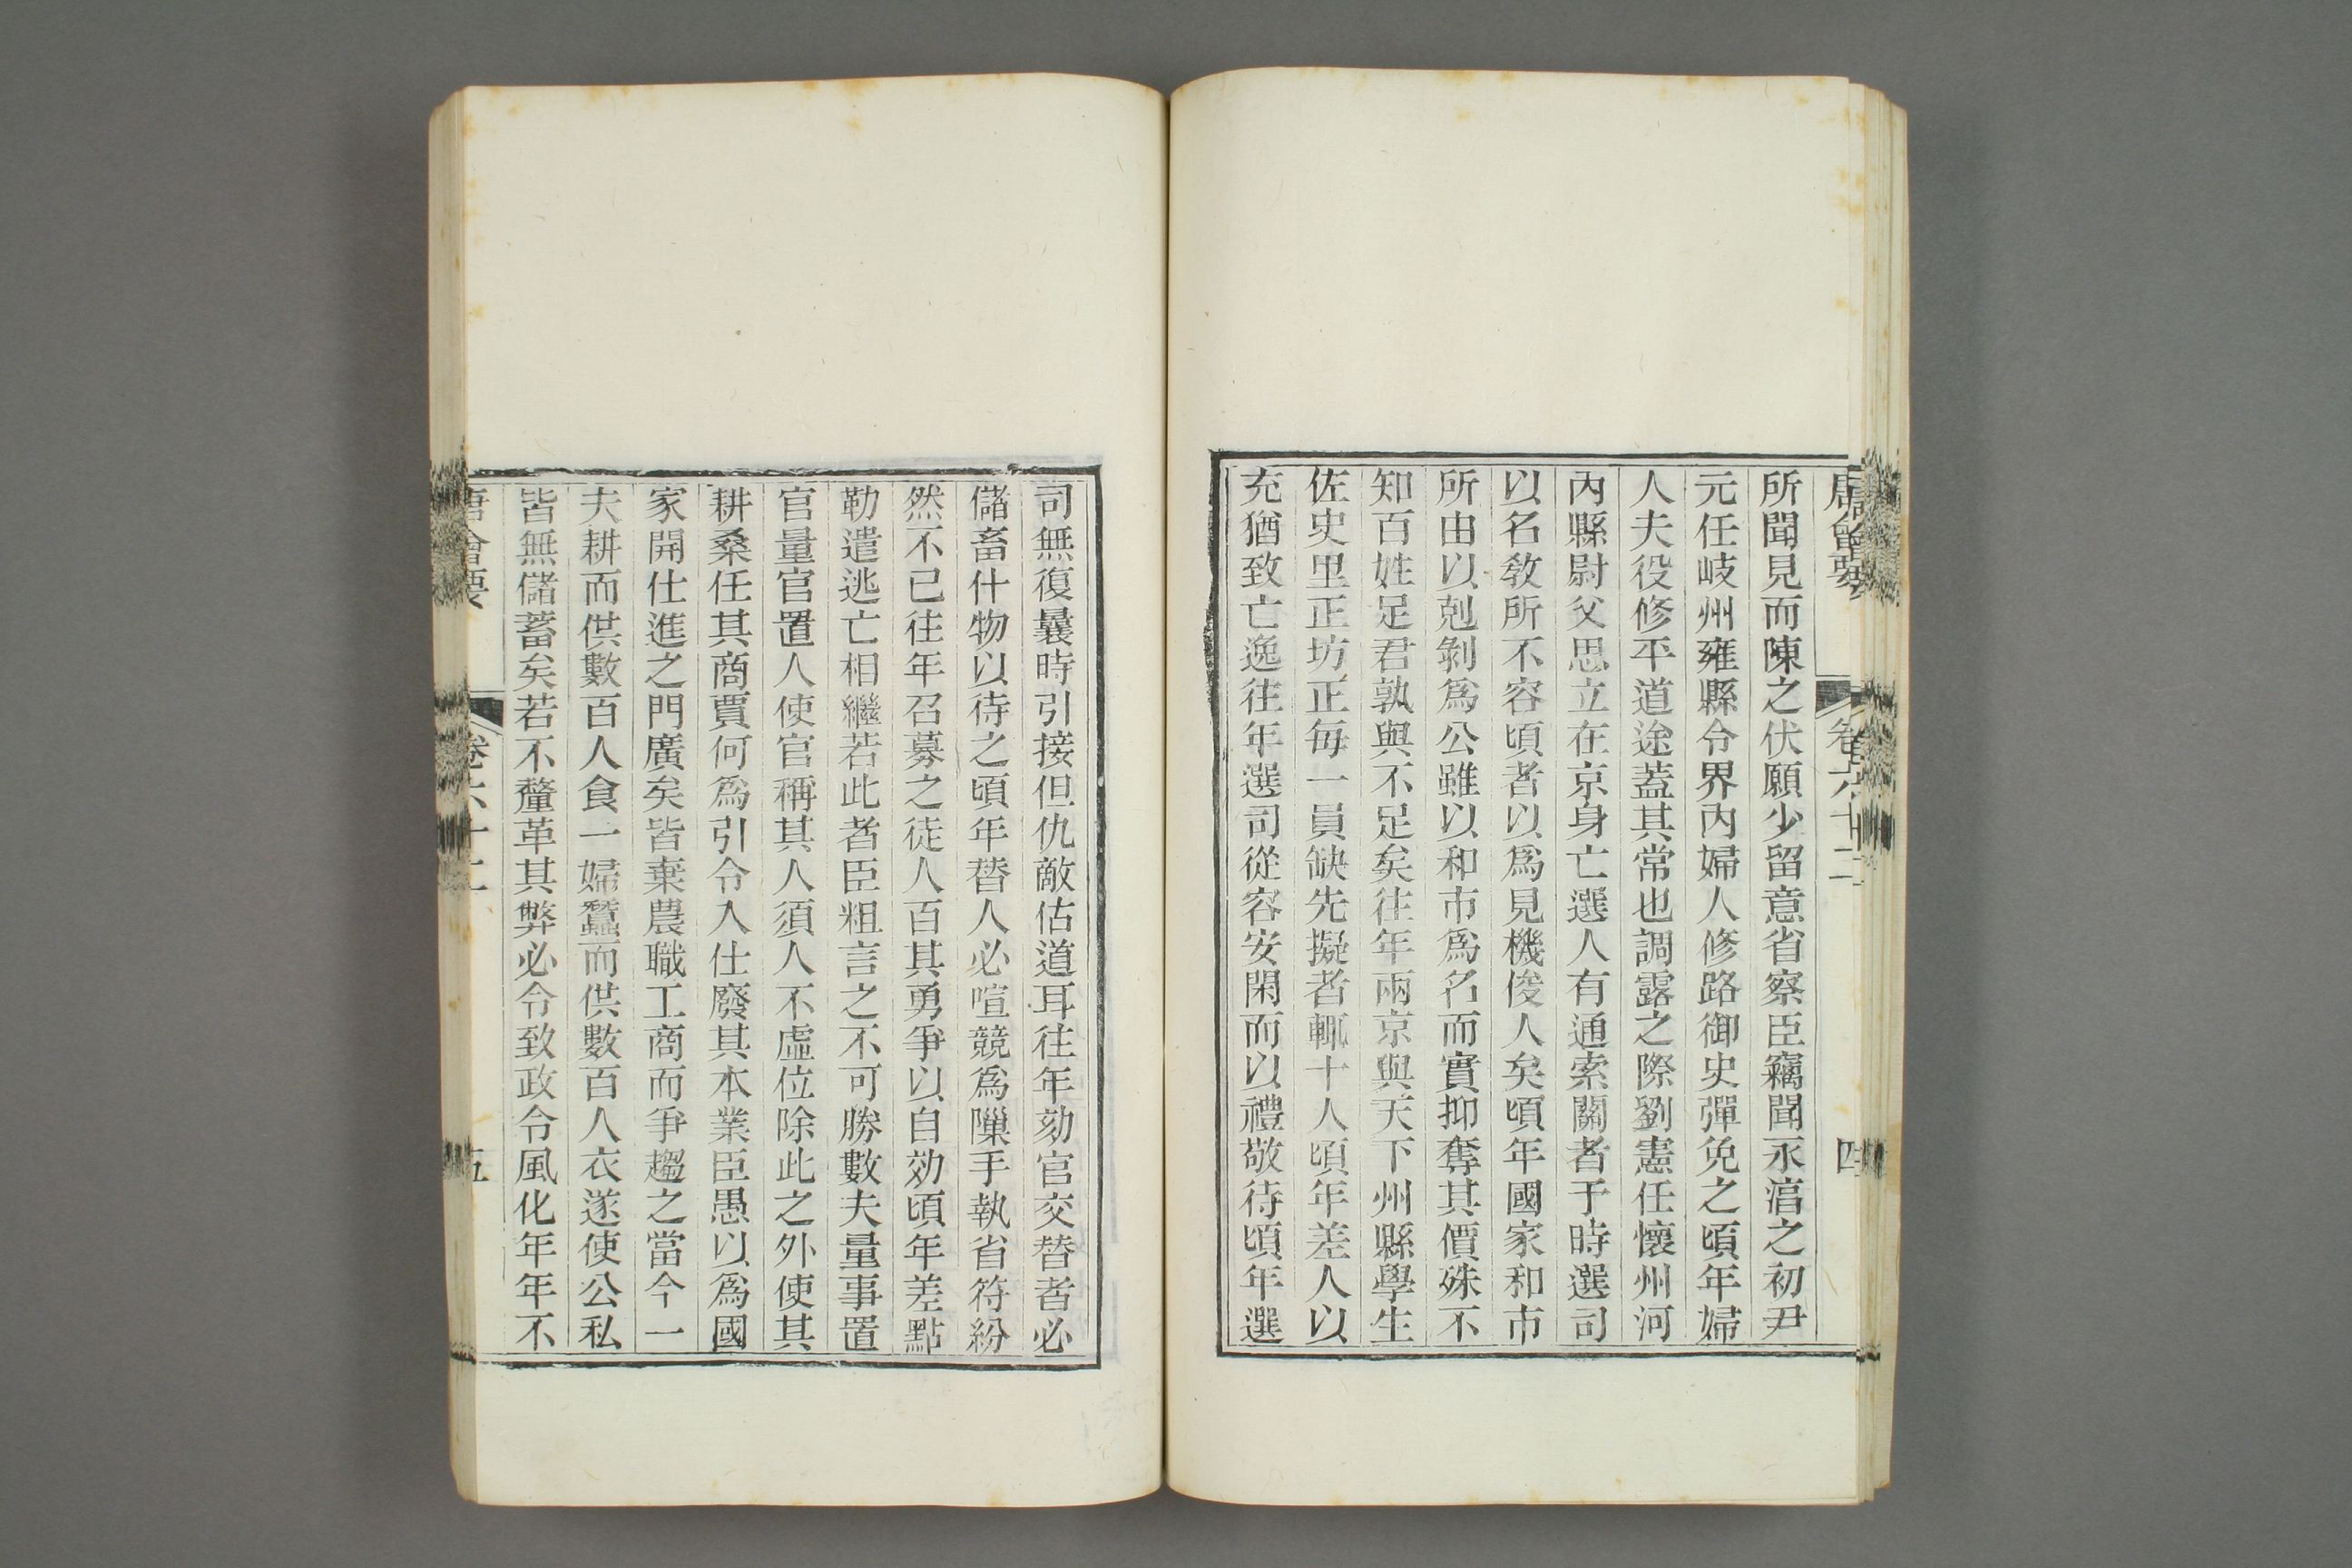 唐會要 卷六十二 四
所聞見而陳之伏願少留意省察臣竊聞永淳之初尹
元任岐州雍縣令界內婦人修路御史彈免之頃年婦
人夫役修平道途蓋其常也調露之際劉憲任懷州河
內縣尉父思立在京身亡選人有通索闕者于時選司
以名敎所不容頃者以爲見機俊人矣頃年國家和市
所由以剋剝爲公雖以和市爲名而實抑奪其價殊不
知百姓足君孰與不足矣往年兩京與天下州縣學生
佐史里正坊正每一員缺先擬者輒十人頃年差人以
充猶致亡逸往年選司從容安閑而以禮敬待頃年選
司無復曩時引接但仇敵估道耳往年効官交替者必
儲畜什物以待之頃年替人必喧競爲隟手執省符紛
然不已往年召募之徒人百其勇爭以自効頃年差點
勒遣逃亡相繼若此者臣粗言之不可勝數夫量事置
官量官置人使官稱其人須人不虛位除此之外使其
耕桑任其商賈何爲引令入仕廢其本業臣愚以爲國
家開仕進之門廣矣皆棄農職工商而爭趨之當今一
夫耕而供數百人食一婦蠶而供數百人衣遂使公私
皆無儲蓄矣若不釐革其弊必令致政令風化年年不
唐會要 卷六十二 五